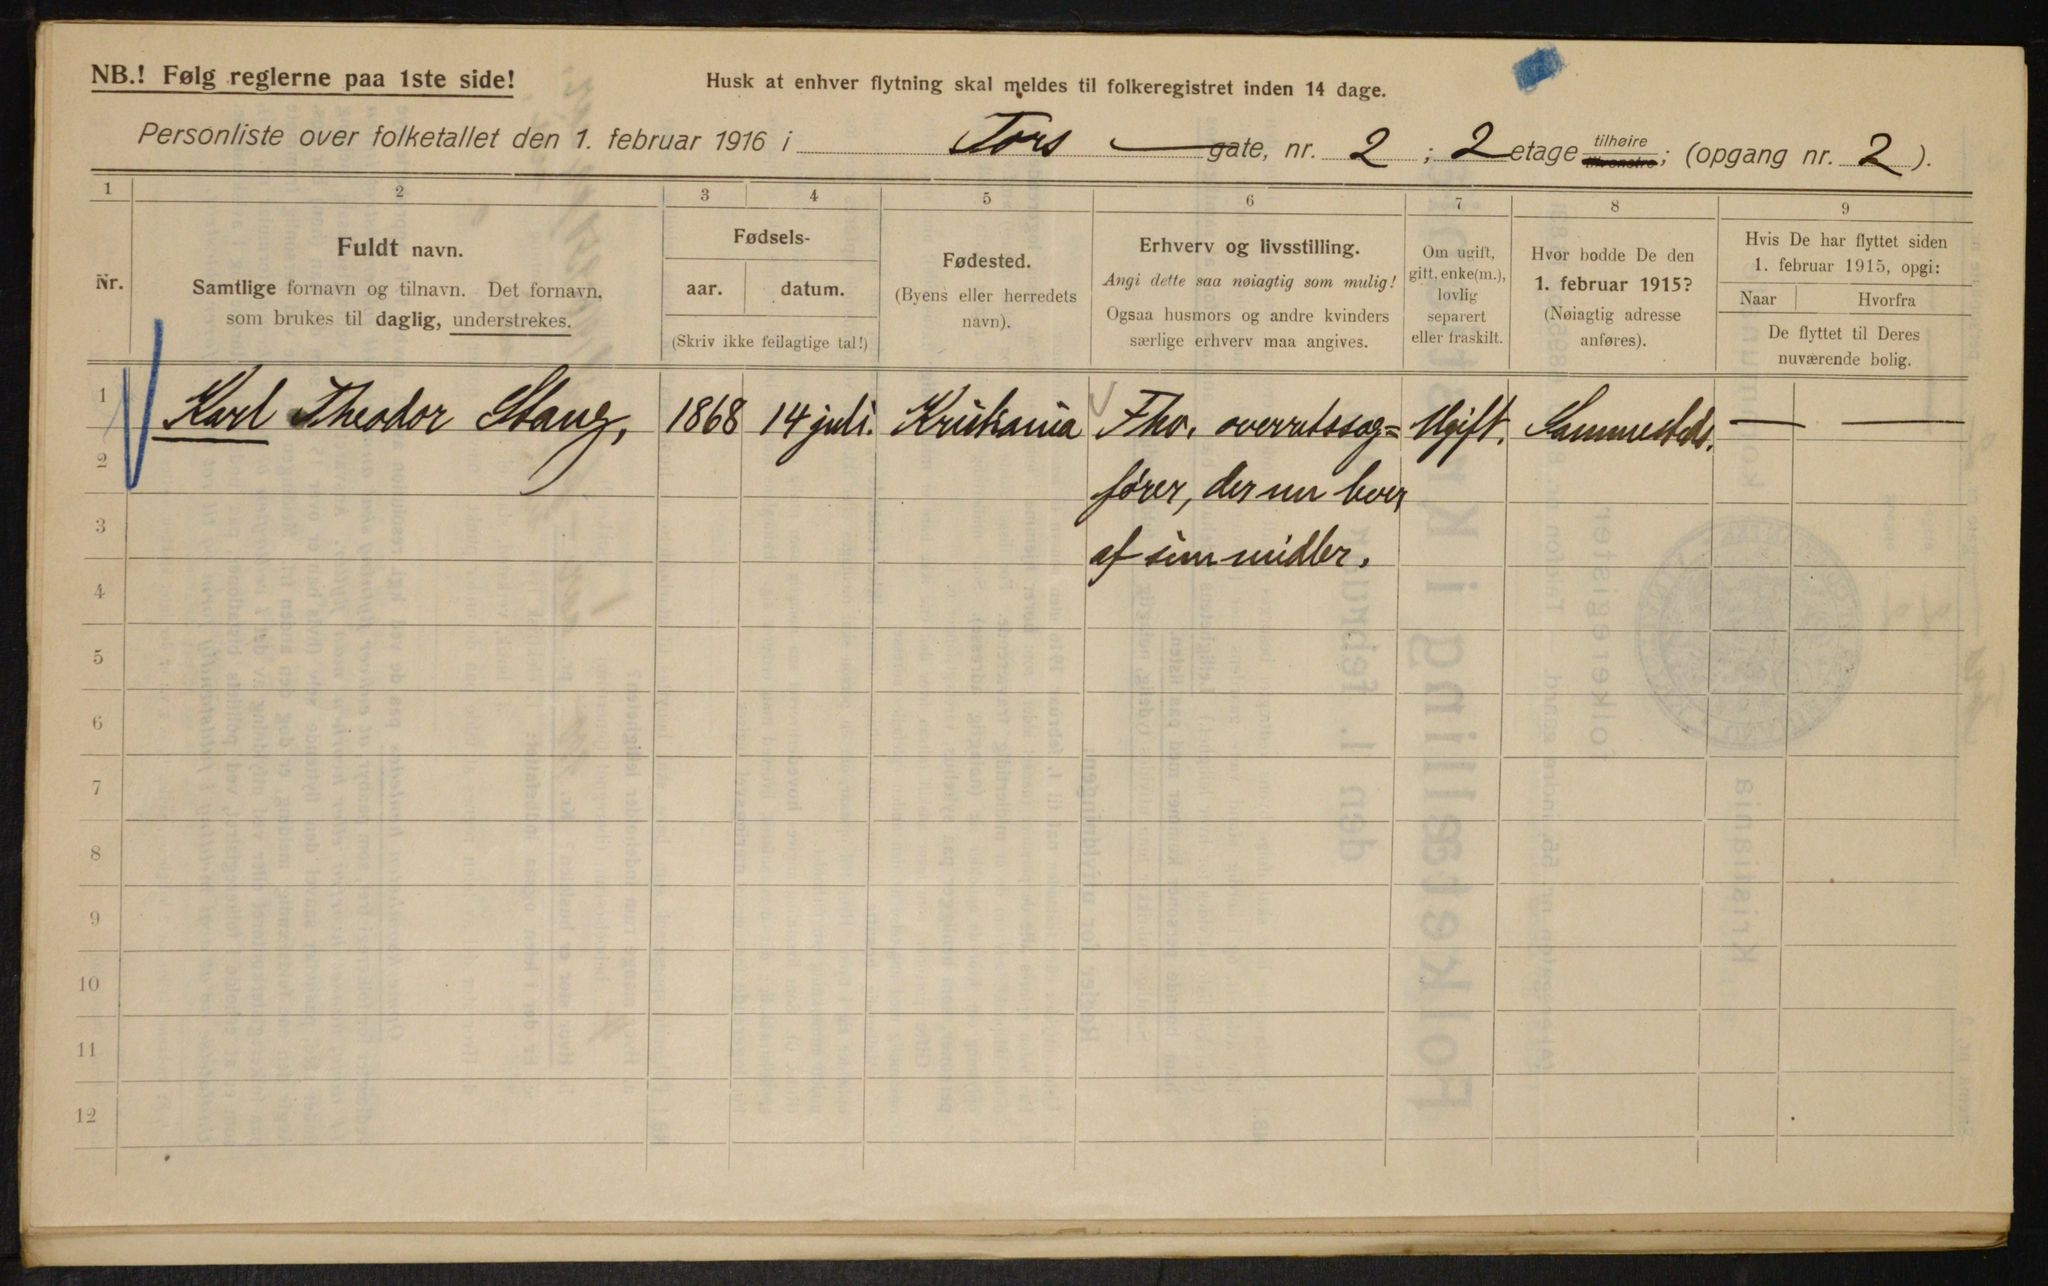 NB.! Følg reglerne paa 1ste side!
Husk at enhver flytning skal meldes til folkeregistret inden 14 dage.
Personliste over folketallet den 1. februar 1916 i Tors gate, nr. 2 ; 2 etage tilhøire tilvenstre; (opgang nr. 2 ).
1 2 3 4 5 6 7 8 9
Nr.
Fuldt navn.
Samtlige fornavn og tilnavn. Det fornavn,
som brukes til daglig, understrekes.
Fødsels-
aar. datum.
(Skriv ikke feilagtige tal!)
Fødested.
(Byens eller herredets
navn).
Erhverv og livsstilling.
Angi dette saa nøiagtig som mulig!
Ogsaa husmors og andre kvinders
særlige erhverv maa angives.
Om ugift,
gift, enke(m.),
lovlig
separert
eller fraskilt.
Hvor bodde De den
1. februar 1915?
(Nøiagtig adresse
anføres).
Hvis De har flyttet siden
1. februar 1915, opgi:
Naar Hvorfra
De flyttet til Deres
nuværende bolig.
1 Karl Theodor Stang, 1868 14 juli. Kristiania Fhv. overretssag= Ugift. Sammesteds. — —
2 fører, der nu lever
3 af sine midler.
4
5
6
7
8
9
10
11
12